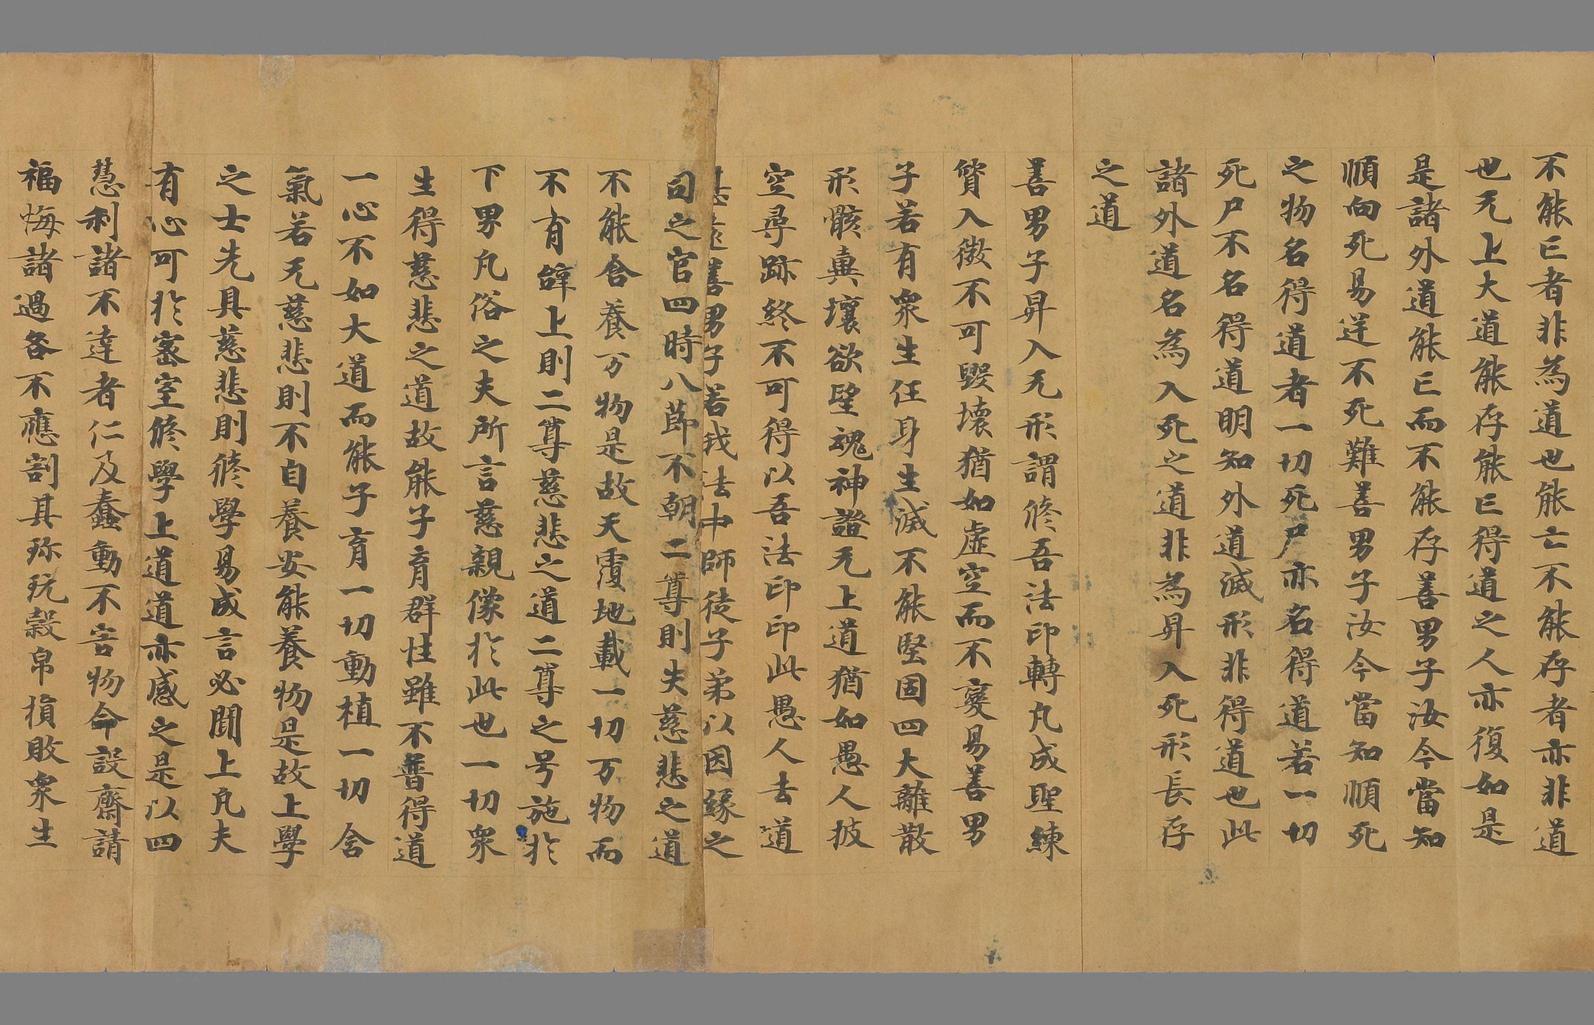 不能亡者非為道也能亡不能存者亦非道
也无上大道能存能亡得道之人亦復如是
是諸外道能亡而不能存善男子汝今當知
順向死易逆不死難善男子汝今當知順死
之物名得道者一切死尸亦名得道若一切
死尸不名得道明知外道滅形非得道也此
諸外道名為入死之道非為昇入死形長存
之道
善男子昇入无形謂修吾法印轉凡成聖練
質入微不可毀壞猶如虛空而不變易善男
子若有眾生任身生滅不能堅固四大離散
形骸棄壞欲望魂神證无上道猶如愚人披
空尋跡終不可得以吾法印印此愚人去道
善男子若我法中師徒子弟以因緣之
司之官四時八節不朝二尊則失慈悲之道
不能含養万物是故天覆地載一切万物而
不有辞上則二尊慈悲之道二尊之号施於
下男凡俗之夫所言慈親像於此也一切眾
生得慈悲之道故能子育群性雖不普得道
一心不如大道而能子育一切動植一切含
氣若无慈悲則不自養安能養物是故上學
之士先具慈悲則修學易成言必聞上凡夫
有心可於密室修學上道道亦感之是以四
慧利諸不達者仁及蠢動不害物命設齋請
福悔諸過咎不應割其珍玩穀帛損敗眾生